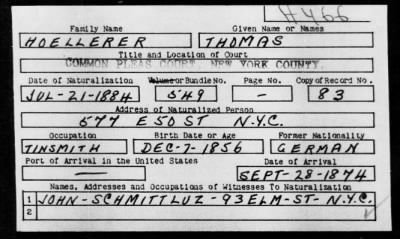 H466
Family Name Given Name or Names
HOELLERER THOMAS
Title and Location of Court
COMMON PLEAS COURT, NEW YORK COUNTY.
Date of Naturalization Volume or Bundle No. Page No. Copy of Record No.
JUL-21-1884 549 - 83
Address of Naturalized Person
577 E 50 ST N.Y.C.
Occupation Birth Date or Age Former Nationality
TINSMITH DEC-7-1856 GERMAN
Port of Arrival in the United States Date of Arrival
- SEPT-28-1874
Names, Addresses and Occupations of Witnesses To Naturalization
1 JOHN-SCHMITTLUZ-93 ELM-ST-N.Y.C.
2